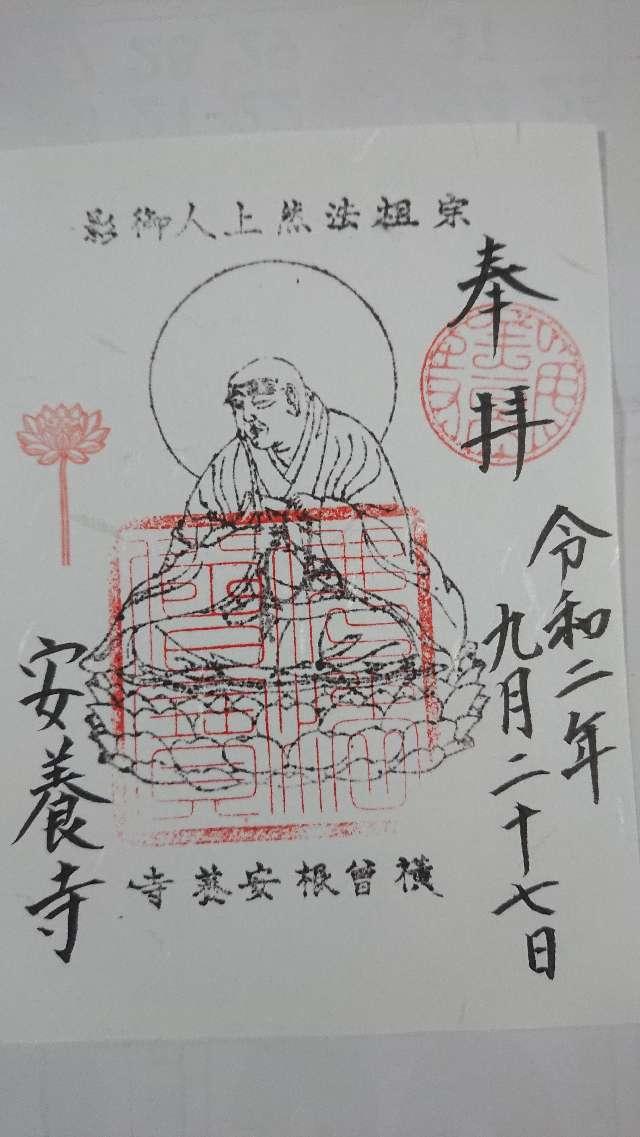 宗祖法然上人御影
奉拝
令和二年
九月二十七日
横曾根安養寺
安養寺